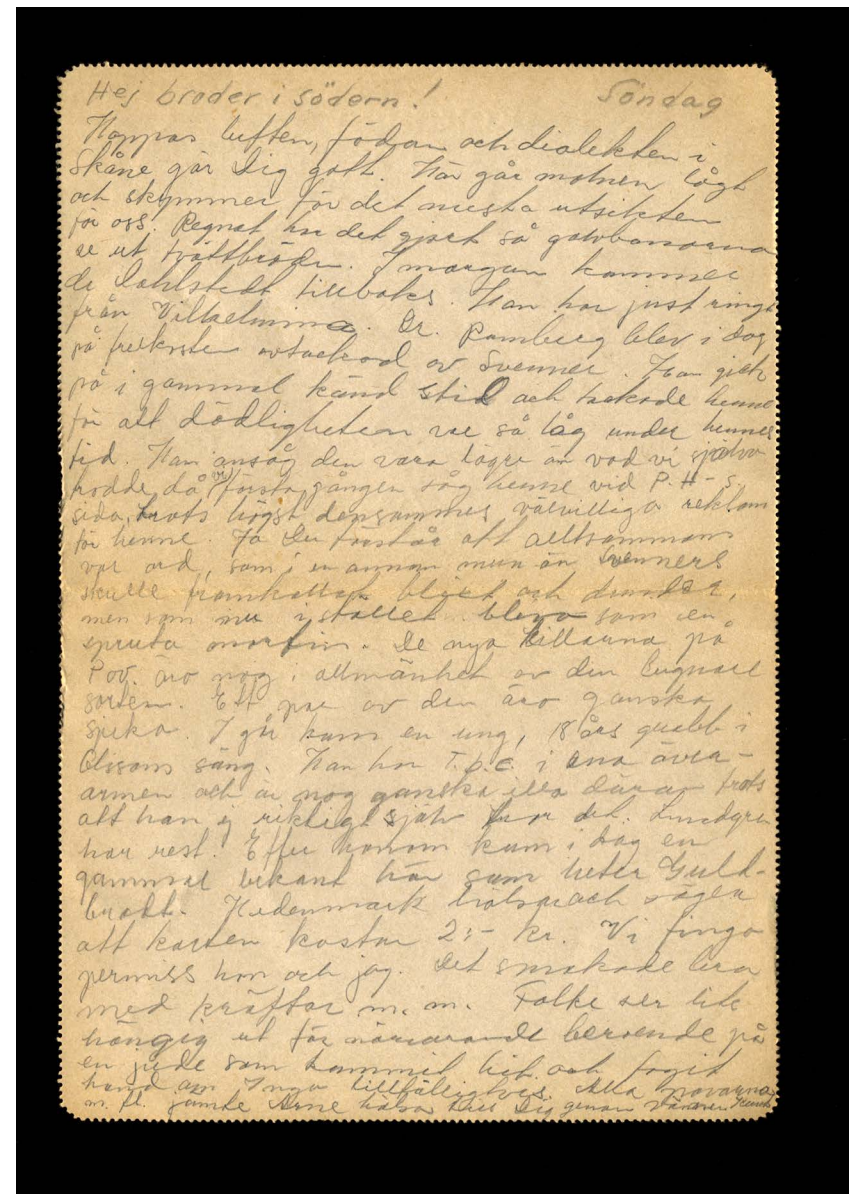 Hej broder i södern! Söndag
Hoppas luften, födan och dialekten i
Skåne gör Dig gott. Här går molnen lågt
och skymmer för det mesta utsikten
för oss. Regnat har det gjort så golvbanorna
se ut tvättbräden. I morgon kommer
de Dahlstedt tillbaks. Han har just ringt
från Vilhelmina. Dr. Ramberg blev i dag
på frukosten avtackad av Svenner. Han gick
på i gammal känd stil och tackade henne
för att dödligheten var så låg under hennes
tid. Han ansåg den vara lägre än vad vi själva
trodde, då vi första gången såg henne vid P. H-s.
sida, trots högst densammes välvilliga reklam
för henne. Ja Du förstår att alltsammans
var ord, som i en annan mun än Svenners
skulle framkallat blixt och dunder,
men som nu istället blevo som en
spruta morfin. De nya killarna på
Pav. äro nog i allmänhet av den lugnare
sorten. Ett par av dem äro ganska
sjuka. I går kom en ung, 18 års grabb i
Olssons säng. Han har T.b.c. i ena över-
armen och är nog ganska illa däran trots
att han ej riktigt själv tror det. Lundgren
har rest. Efter honom kom i dag en
gammal bekant här som heter Guld-
brott. Hedenmark hälsar och säger
att korten kostar 2:- kr. Vi fingo
permiss han och jag. Det smakade bra
med kräftor m. m. Folke ser lite
hängig ut för närvarande beroende på
en jude som kommit hit och tagit
hand om Inga tillfälligtvis. Alla
m. fl. jämte Arne hälsar till Dig genom vännen